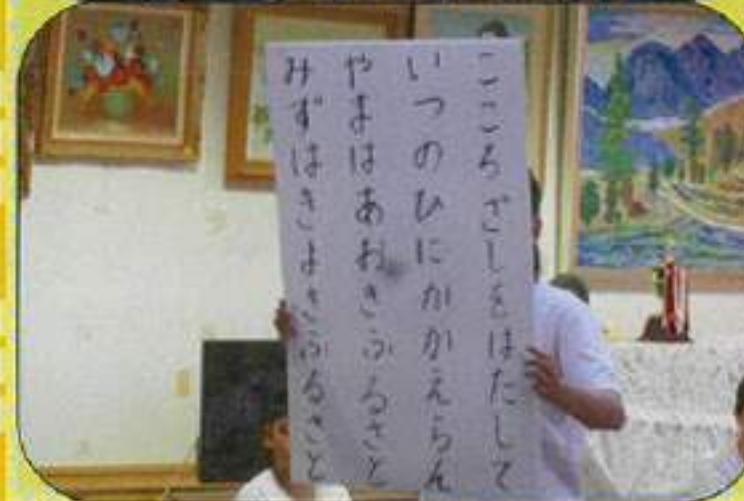 こころざしをはたして
いつのひにかかえらん
やまはあおきふるさと
みずはきよきふるさと